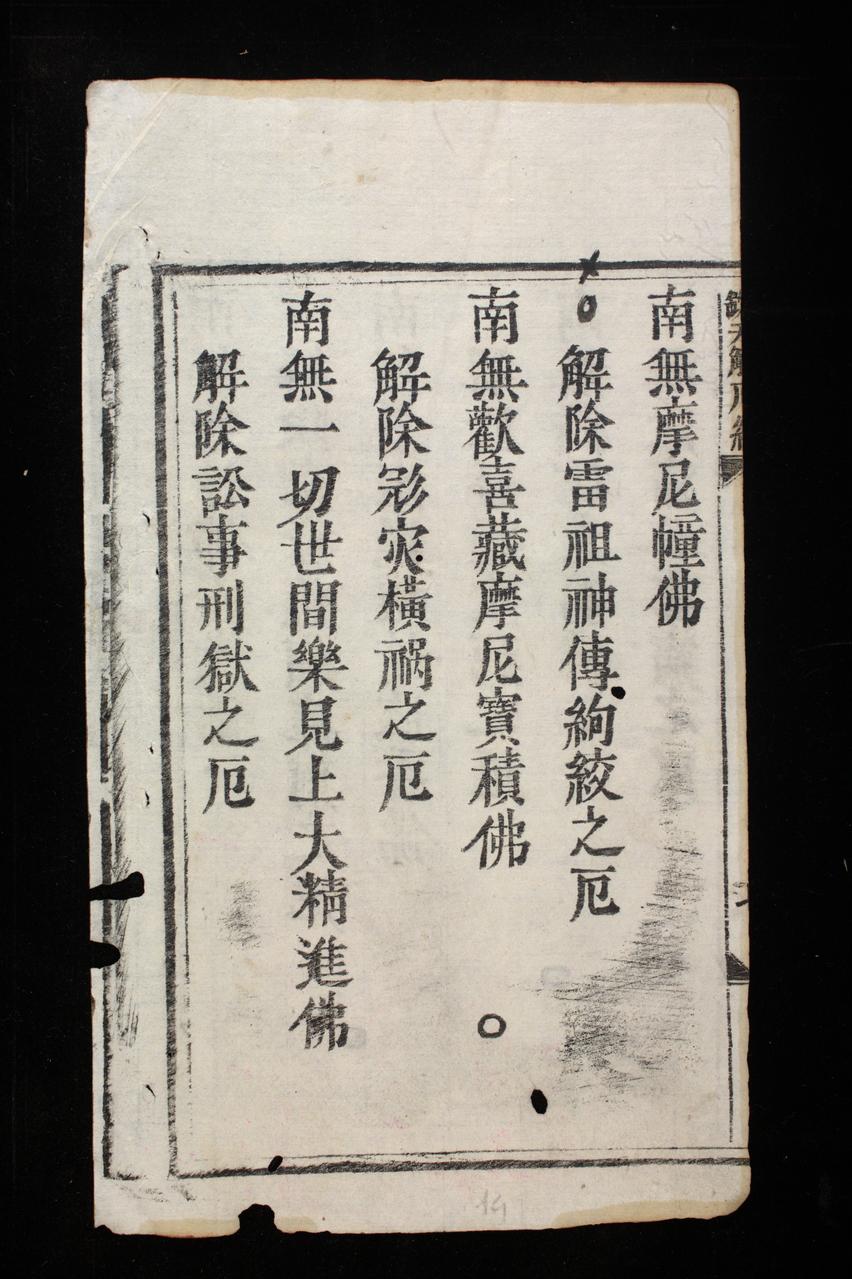 南無摩尼幢佛
解除雷祖神傳絢絞之厄
南無歡喜藏摩尼寶積佛
解除灾橫禍之厄
南無一切世間樂見上大精進佛
解除訟事刑獄之厄